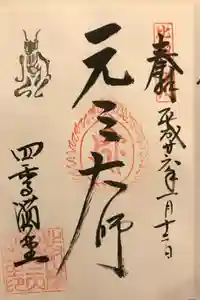 奉拝 平成廿六年一月十二日
元三大師
四季講堂